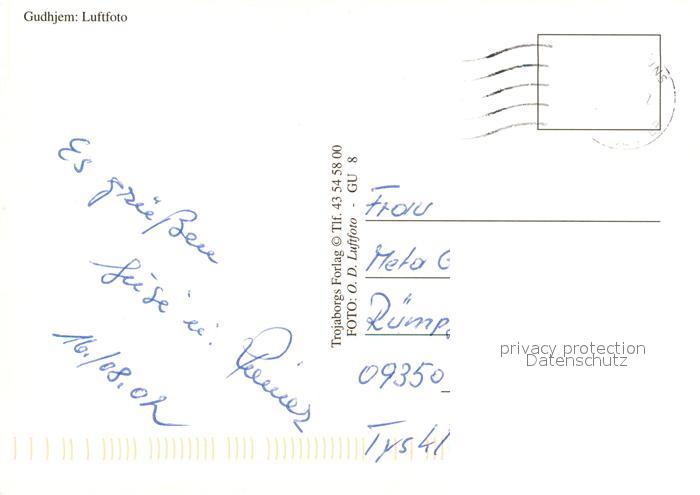 Gudhjem: Luftfoto
Es grüßen
Susi u. Reiner
16./08.02
Trojaborgs Forlag © Tlf. 43 54 58 00
FOTO: O. D. Luftfoto - GU 8
Frau
Meta G
Rümp
09350
Tyskl
privacy protection
Datenschutz